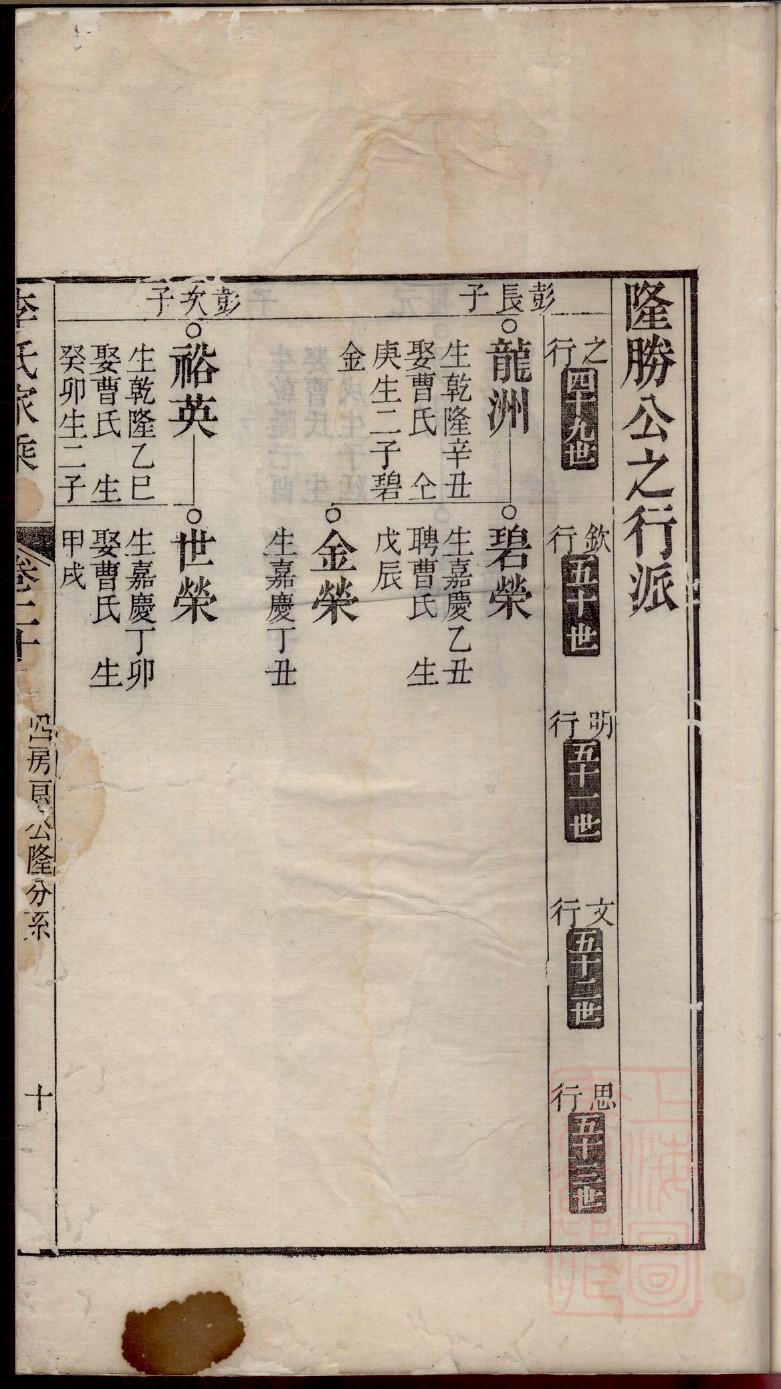 隆勝公之行派
之行 四十九世
欽行 五十世
明行 五十一世
文行 五十二世
思行 五十三世
彭長子
龍洲
生乾隆辛丑
娶曹氏 仝
庚生二子碧
金
碧榮
生嘉慶乙丑
聘曹氏 生
戊辰
金榮
生嘉慶丁丑
彭次子
裕英
生乾隆乙巳
娶曹氏 生
癸卯生二子
世榮
生嘉慶丁卯
娶曹氏 生
甲戌
李氏家乘
卷二十
四房 公隆分系
十
上海圖